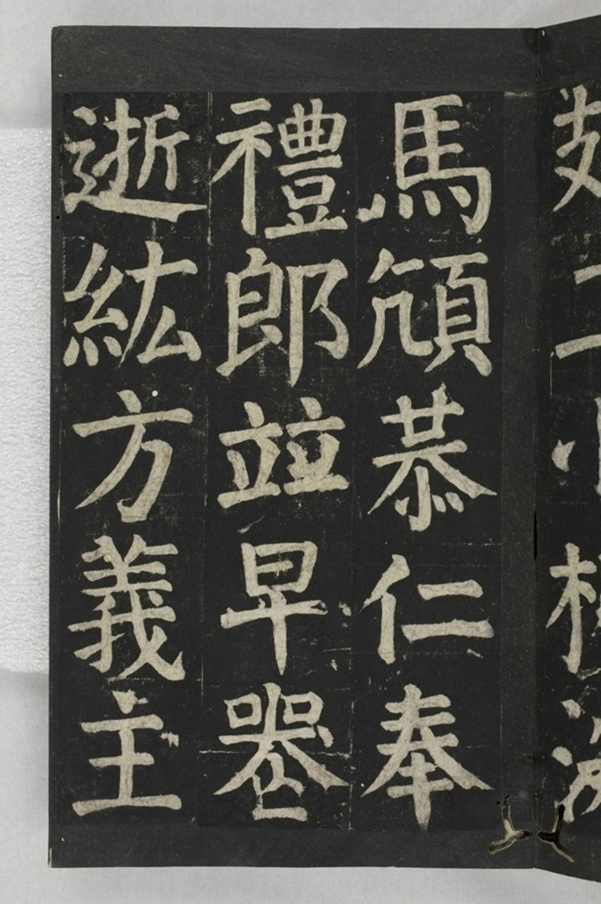 馬頎恭仁奉
禮郎竝早喪
逝紘方義主